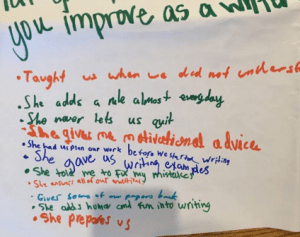 you improve as a
• Taught us when we did not
• She adds a rule almost everyday
• She never lets us quit
• She gives me motivational advice
• She had us plan our work before we started writing
• She gave us writing examples
• She told me to fix my mistakes
• She answers all of our questions
• Gives some of our papers back
• She adds humor and fun into writing
• She prepares us